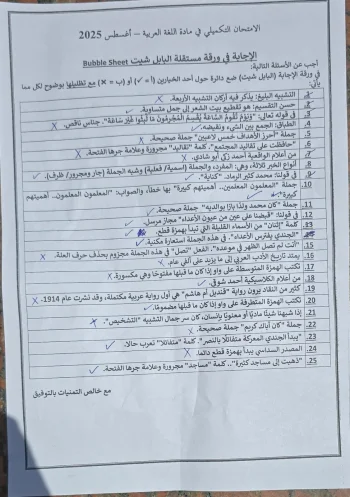 الامتحان التكميلي في مادة اللغة العربية – أغسطس 2025
الإجابة في ورقة مستقلة البابل شيت Bubble Sheet
أجب عن الأسئلة التالية:
في ورقة الإجابة (البابل شيت) ضع دائرة حول أحد الخيارين (أ = ✓) أو (ب = ×) مع تظليلها بوضوح لكل مما
يأتي:
1. التشبيه البليغ: يذكر فيه أركان التشبيه الأربعة.
2. حسن التقسيم: هو تقطيع بيت الشعر إلى جمل متساوية.
3. في قوله تعالى: "وَيَوْمَ تَقُومُ السَّاعَةُ يُقْسِمُ الْمُجْرِمُونَ مَا لَبِثُوا غَيْرَ سَاعَةٍ". جناس ناقص.
4. الطباق: الجمع بين الشيء ونقيضه.
5. جملة "أحرز الأهداف خمس لاعبين" جملة صحيحة.
6. "حافظت على تقاليد المجتمع". كلمة "تقاليد" مجرورة وعلامة جرها الفتحة.
7. من أعلام الواقعية أحمد زكي أبو شادي.
8. أنواع الخبر ثلاثة، وهي: المفرد، والجملة (اسمية/ فعلية) وشبه الجملة (جار ومجرور/ ظرف).
9. في قولنا: محمد كثير الرماد. "كناية".
10. جملة "المعلمون المعلمين.. أهميتهم كبيرة" بها خطأ، والصواب: "المعلمون المعلمون.. أهميتهم
كبيرة".
11. جملة "كان محمد ولدًا بارًا بوالديه" جملة صحيحة.
12. في قولنا: "قبضنا على عين من عيون الأعداء" مجاز مرسل.
13. كلمة "إثنان" من الأسماء القليلة التي تبدأ بهمزة قطع.
14. "الجندي يفترس الأعداء". في هذه الجملة استعارة مكنية.
15. "أنت لم تصل الظهر في موعده". الفعل "تصل" في هذه الجملة مجزوم بحذف حرف العلة.
16. يمتد تاريخ الأدب العربي إلى ما يزيد على ألفي عام.
17. تكتب الهمزة المتوسطة على واو إذا كان ما قبلها مفتوحًا وهي مكسورة.
18. من أعلام الكلاسيكية أحمد شوقي.
19. كثير من النقاد يرون رواية "قنديل أم هاشم" هي أول رواية عربية مكتملة، وقد نشرت عام 1914.
20. تكتب الهمزة المتطرفة على واو إذا كان ما قبلها مضمومًا.
21. إذا شبهنا شيئًا ماديًا أو معنويًا بإنسان، كان سر جمال التشبيه "التشخيص".
22. جملة "كان أباك كريم" جملة صحيحة.
23. "يبدأ الجندي المعركة متفائلًا بالنصر". كلمة "متفائلًا" تعرب حالًا.
24. المصدر السداسي يبدأ بهمزة قطع دائمًا.
25. "ذهبت إلى مساجد كثيرة". كلمة "مساجد" مجرورة وعلامة جرها الفتحة.
مع خالص التمنيات بالتوفيق